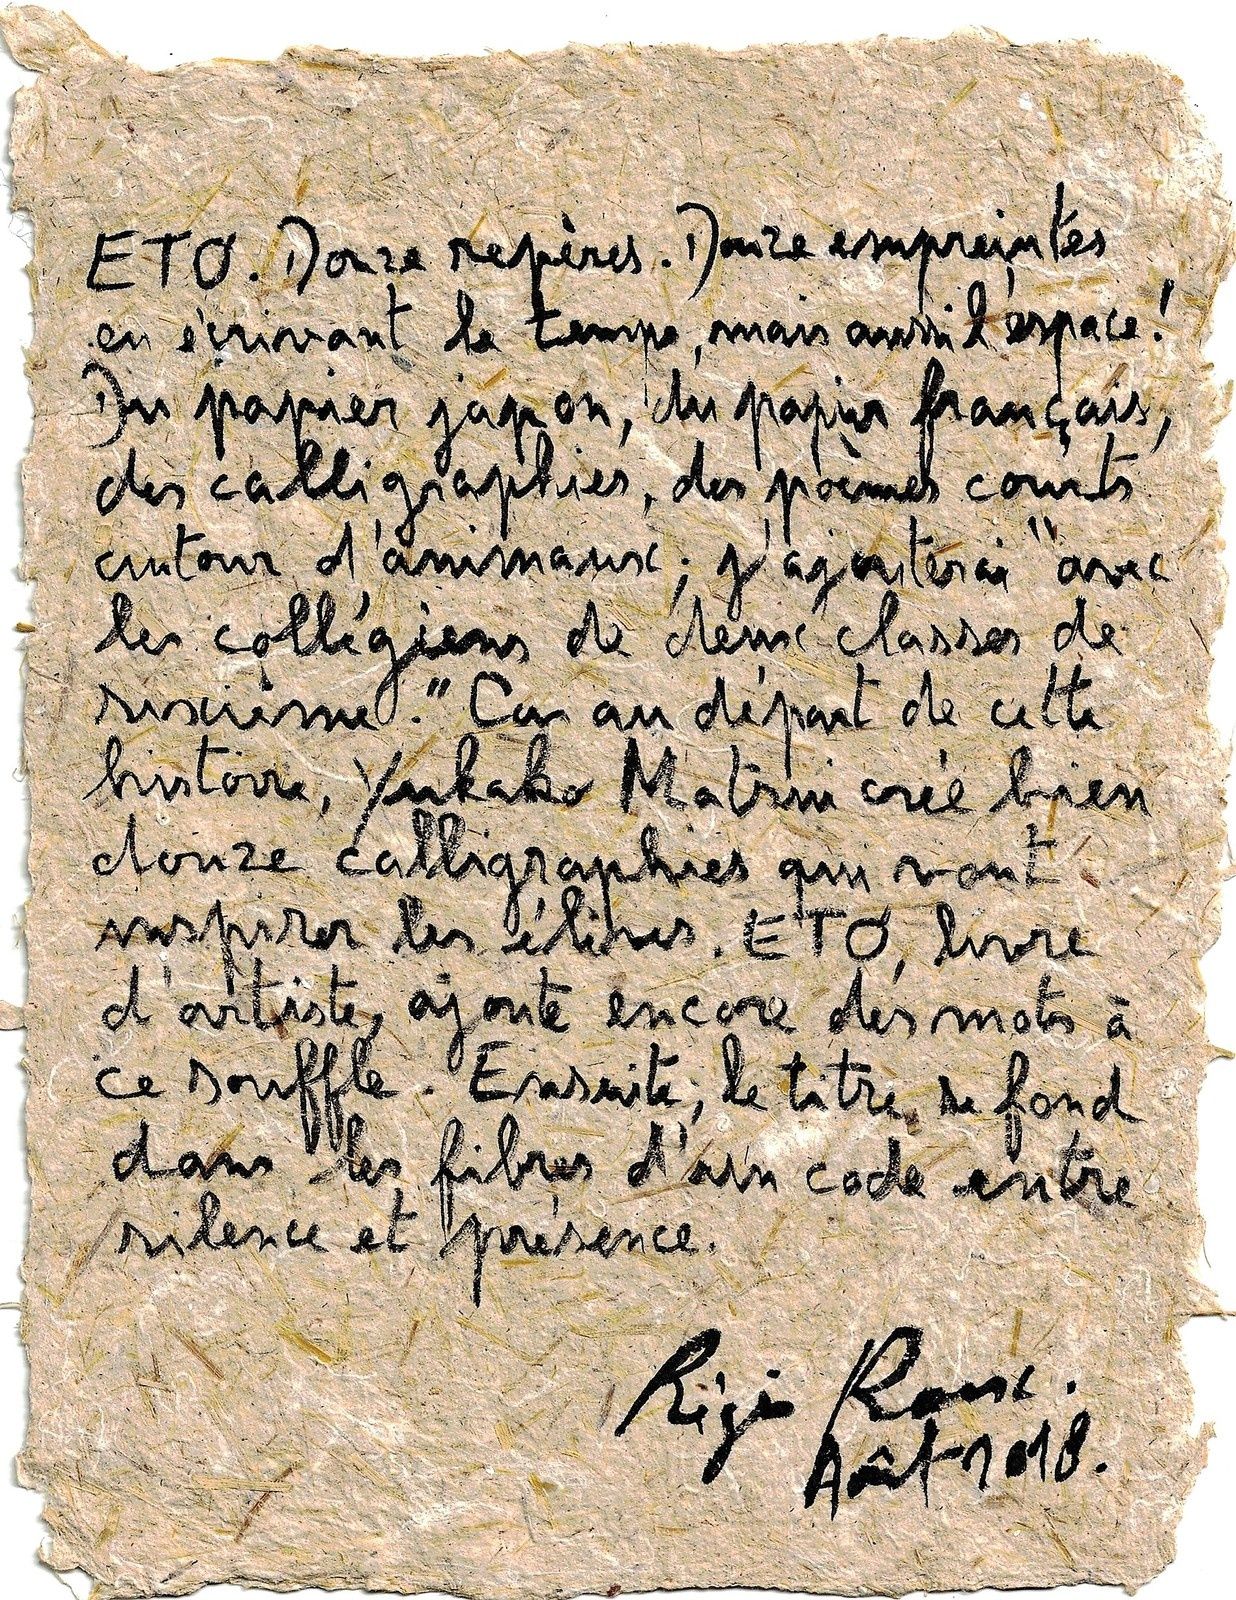 ETO. Douze repères. Douze empreintes
en écrivant le temps, mais aussi l'espace!
Du papier japon, du papier français,
des calligraphies, des poèmes courts
autour d'animaux; j'ajouterai "avec
les collégiens de deux classes de
sixième." Car au départ de cette
histoire, Yukako Matsui crée bien
douze calligraphies qui vont
inspirer les élèves. ETO, livre
d'artiste, ajoute encore des mots à
ce souffle. Ensuite, le titre se fond
dans les fibres d'un code entre
silence et présence.
Régis Roux.
Août 2018.